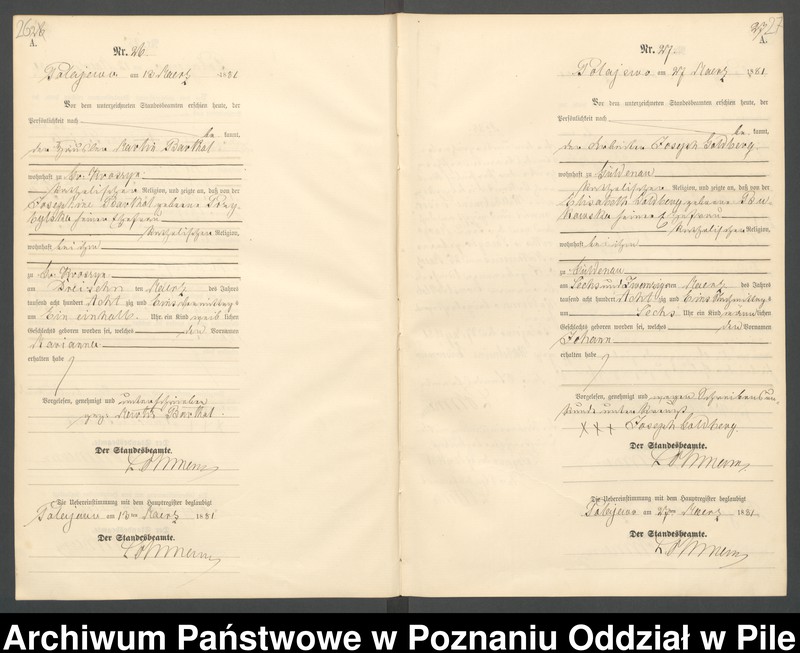 26
A.
Nr. 26
Polajewo am 13 Maerz 1881
Vor dem unterzeichneten Standesbeamten erschien heute, der
Persönlichkeit nach
be kannt,
der Martin Barthel
wohnhaft zu Gr. Kroszyn
katholischer Religion, und zeigte an, daß von der
Josephine Barthel geborene Przy-
bylska seiner Ehefrau
katholischer Religion,
wohnhaft bei ihm
zu Gr. Kroszyn
am Dreizehn ten Maerz des Jahres
tausend acht hundert Acht zig und Eins Vormittags
um Ein einhalb Uhr ein Kind weib lichen
Geschlechts geboren worden sei, welches den Vornamen
Marianna
erhalten habe
Vorgelesen, genehmigt und unterschrieben
gez. Martin Barthel.
Der Standesbeamte.
Die Uebereinstimmung mit dem Hauptregister beglaubigt
Polajewo am 13ten Maerz 1881
Der Standesbeamte.
27
A.
Nr. 27
Polajewo am 27 Maerz 1881
Vor dem unterzeichneten Standesbeamten erschien heute, der
Persönlichkeit nach
be kannt,
der Arbeiter Joseph Goldberg
wohnhaft zu Güldenau
katholischer Religion, und zeigte an, daß von der
Elisabeth Goldberg geborene
seiner Ehefrau
katholischer Religion,
wohnhaft bei ihm
zu Güldenau
am Sechs und Zwanzigsten Maerz des Jahres
tausend acht hundert Acht zig und Eins Nachmittags
um Sechs Uhr ein Kind männ lichen
Geschlechts geboren worden sei, welches den Vornamen
Johann
erhalten habe
Vorgelesen, genehmigt und wegen Schreibensun-
kunde unterkreuzt
XXX Joseph Goldberg
Der Standesbeamte.
Die Uebereinstimmung mit dem Hauptregister beglaubigt
Polajewo am 27ten Maerz 1881
Der Standesbeamte.
Archiwum Państwowe w Poznaniu Oddział w Pile